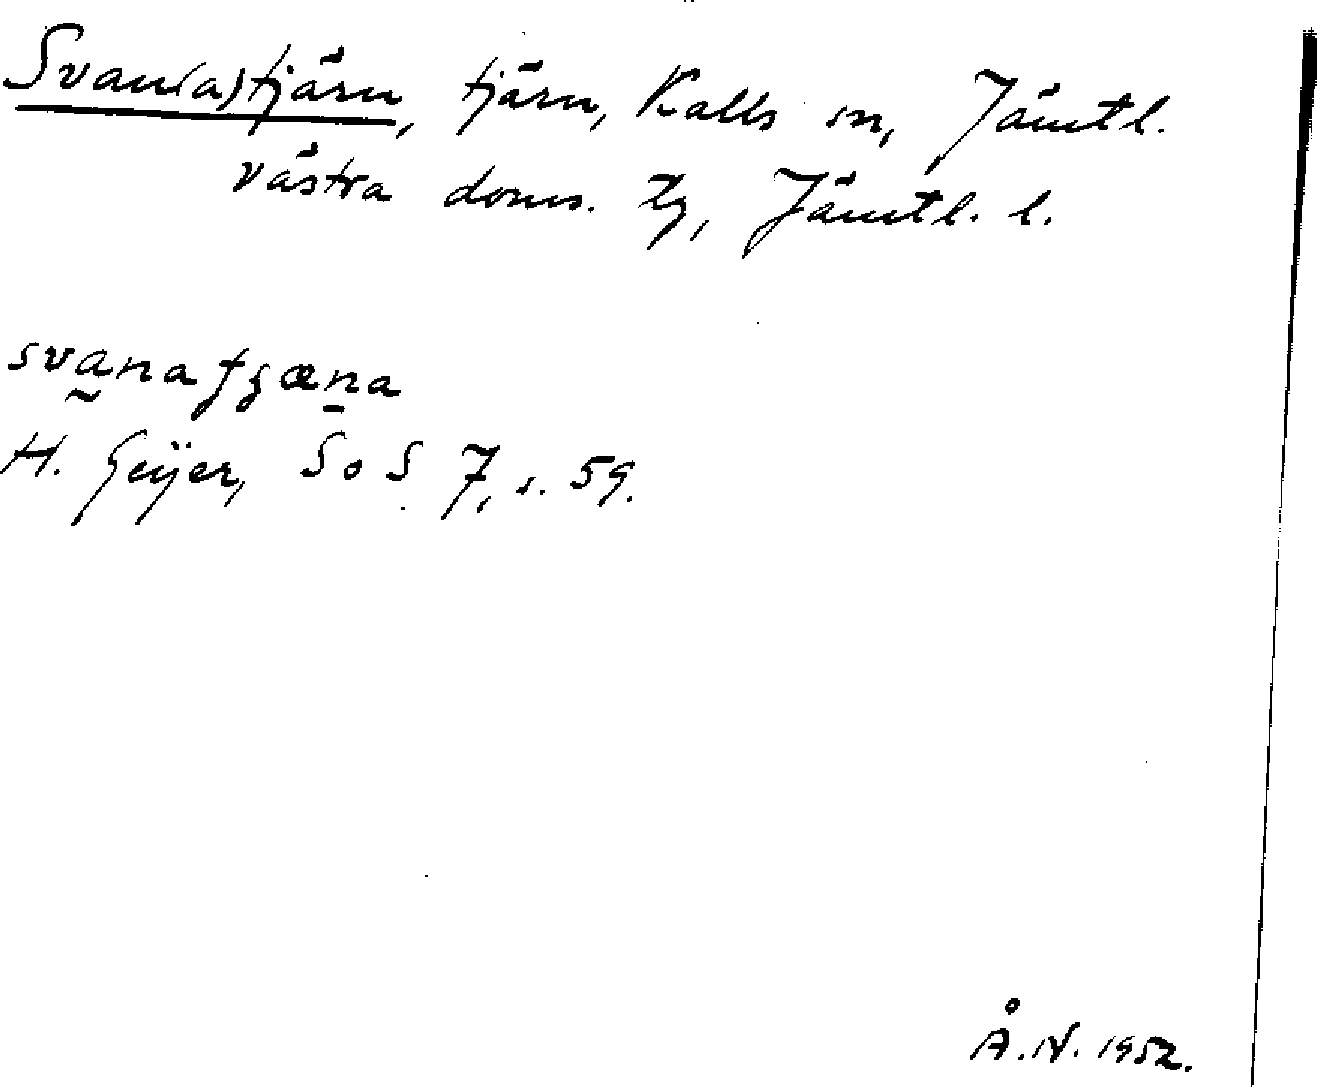 Svan(a)tjärn, tjärn, Kalls sn, Jämtl.
västra doms. tg, Jämtl. l.
H. Geijer, SoS 7, s. 59.
Å.N. 1952.